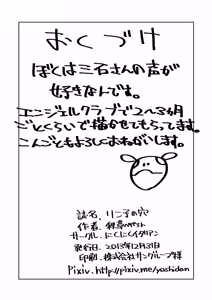 おくづけ
ぼくは三石さんの声が
好きなんです。
エンジェルクラブで2〜3ヵ月
ごとくらいで描かせてもらってます。
こんごともよろしくおねがいします。
誌名、リン子の穴
作者、
サークル、にくにくイタリアン
発行日、2013年12月31日
印刷、株式会社サングループ様
Pixiv、http://pixiv.me/yoshidan